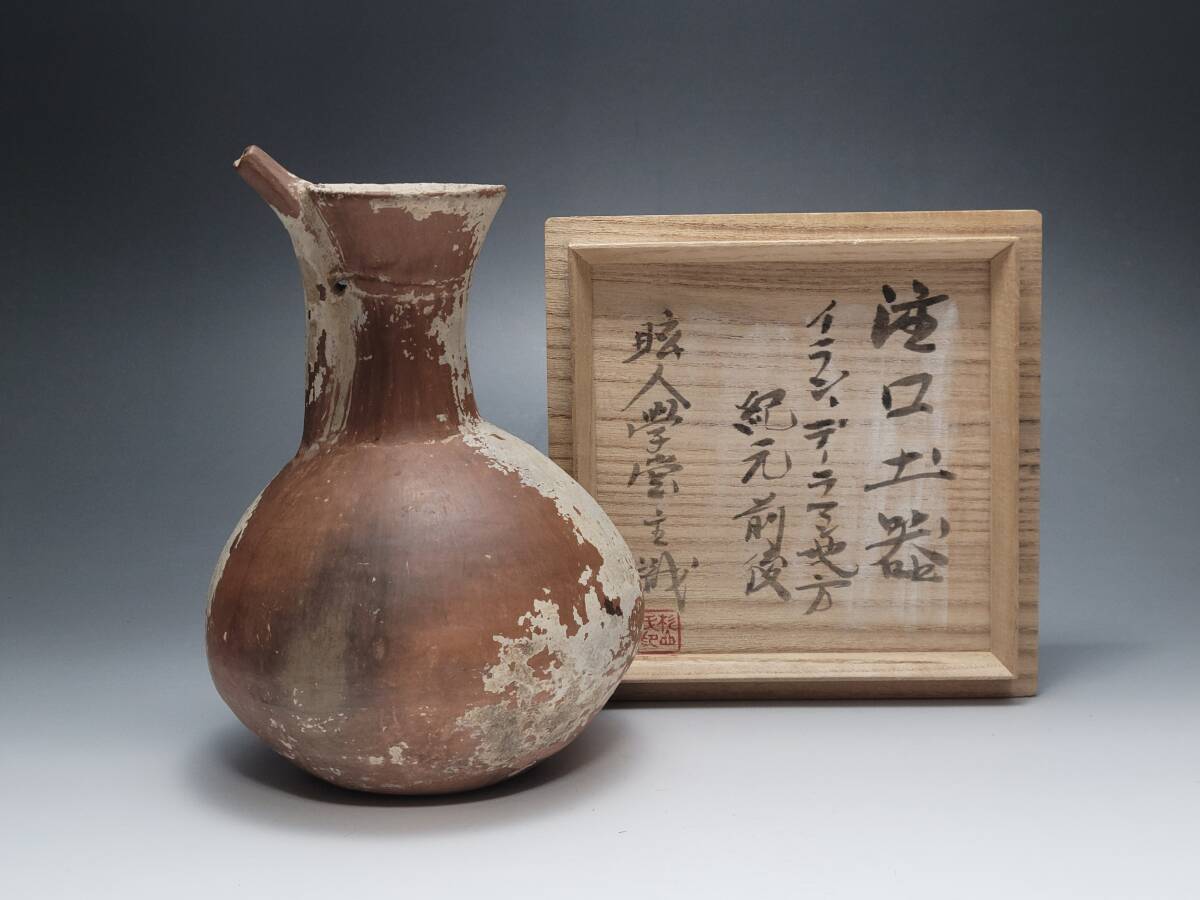 注口土器
イラン、デーラマン地方
紀元前後
眩人学堂主識